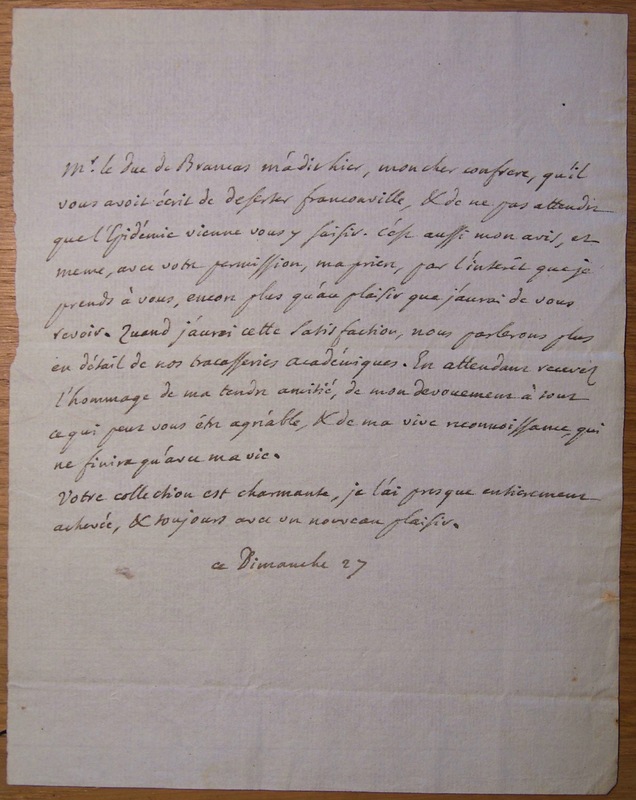 Mr. le duc de Brancas m'a dit hier, mon cher confrere, qu'il
vous avoit écrit de deserter franconville, & de ne pas attendre
que l'Epidémie vienne vous y saisir. c'est aussi mon avis, et
meme, avec votre permission, ma priere, par l'interêt que je
prends à vous, encore plus qu'au plaisir que j'aurai de vous
revoir. Quand j'aurai cette satisfaction, nous parlerons plus
en détail de nos tracasseries académiques. En attendant recevez
l'hommage de ma tendre amitié, de mon devouement à tout
ce qui peut vous être agréable, & de ma vive reconnoissance, qui
ne finira qu'avec ma vie.
Votre collection est charmante, je l'ai presque entierement
achevée, & toujours avec un nouveau plaisir.
ce Dimanche 27